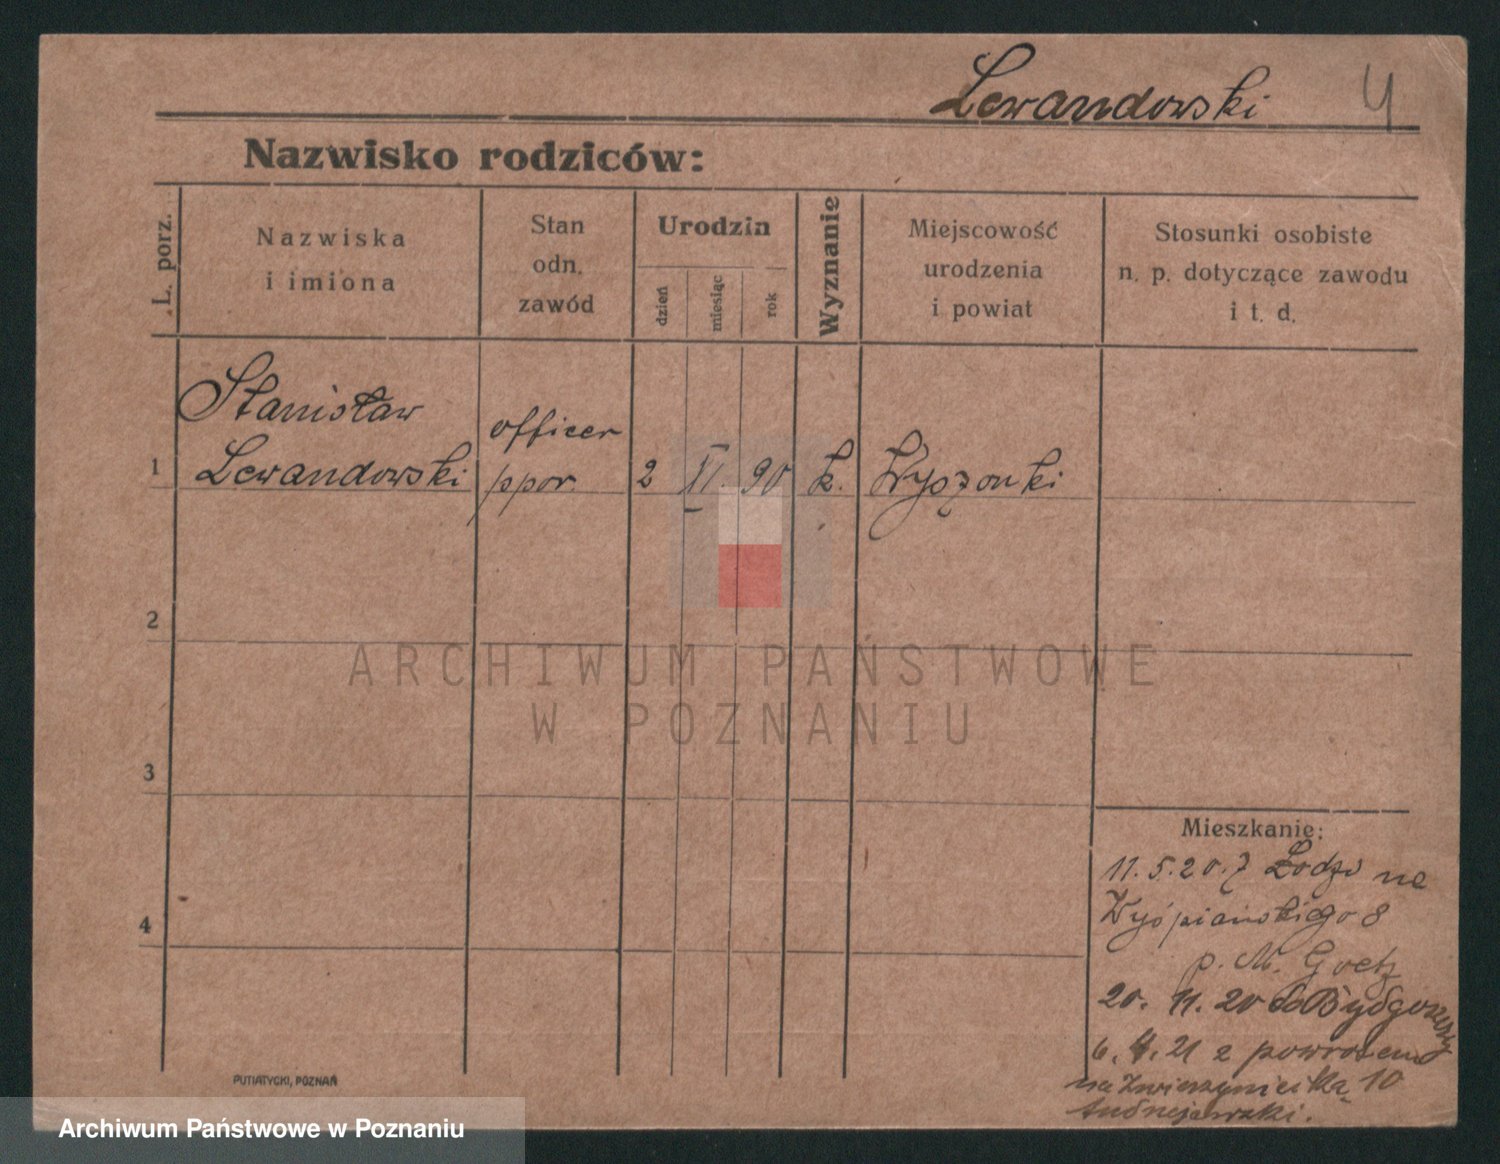 Lewandowski 4
Nazwisko rodziców:
L. porz.
Nazwiska
i imiona
Stan
odn.
zawód
Urodzin
dzień
miesiąc
rok
Wyznanie
Miejscowość
urodzenia
i powiat
Stosunki osobiste
n. p. dotyczące zawodu
i t. d.
Stanisław
officer
1 Lewandowski ppor. 2 XI. 90 k. Wyszonki
2
ARCHIWUM PAŃSTWOWE
W POZNANIU
3
Mieszkanie:
11.5.20. z Łodzi na
Wyspiańskiego 8
4
p. M. Goetz
20. 11. 20 do Bydgoszczy
6. 4. 21 z powrotem
na Zwierzyniecką 10
Andrzejewski.
PUTIATYCKI, POZNAŃ
Archiwum Państwowe w Poznaniu